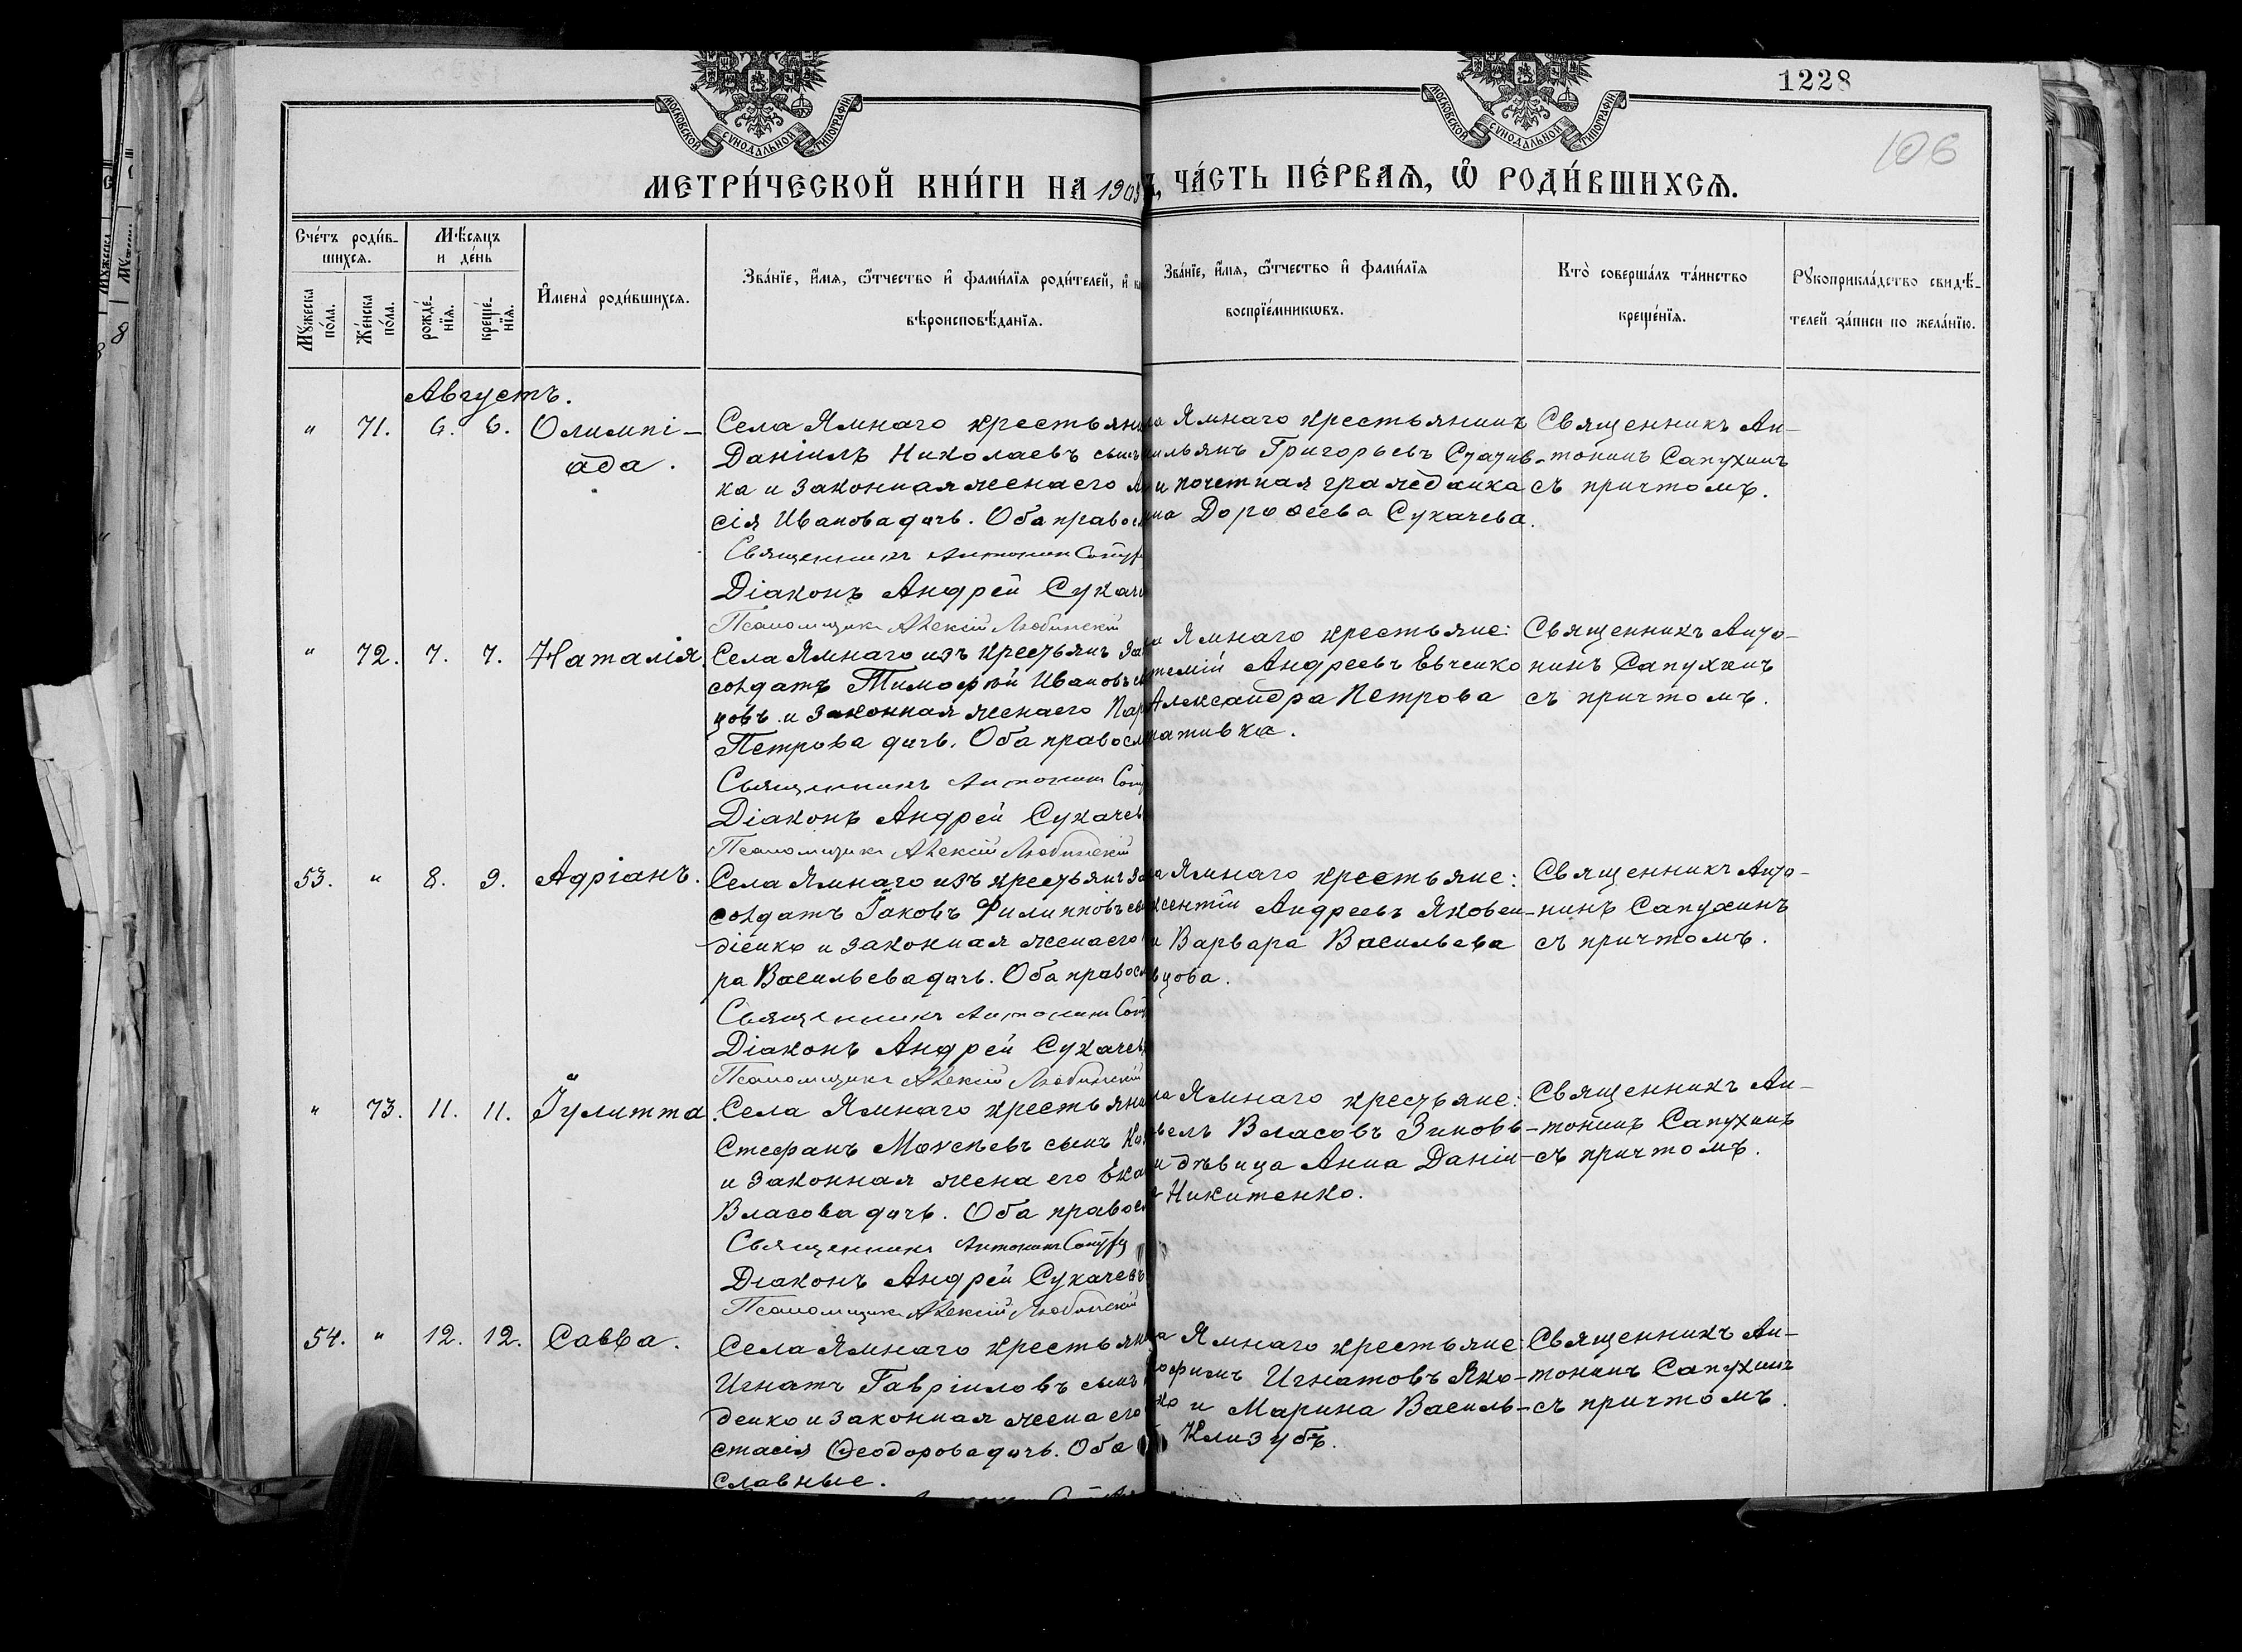 МОСКОВСКОЙ СѴНОДАЛЬНОЙ ТИПОГРАФІИ
МОСКОВСКОЙ СѴНОДАЛЬНОЙ ТИПОГРАФІИ
1228
106
МЕТРИ́ЧЕСКОЙ КНИ́ГИ НА 1903
ЧА́СТЬ ПЕ́РВАѦ, Ѡ҆ РОДИ́ВШИХСѦ.
Сче́тъ роди́в-
шихсѧ.
Мꙋ́жеска
по́ла.
Же́нска
по́ла.
Мѣ́сѧцъ
и де́нь
рожде́-
нїѧ.
креще́-
нїѧ.
И҆мена̀ роди́вшихсѧ.
Зва́нїе, и҆́мѧ, ѻ҆́тчество и҆ фами́лїѧ роди́телей, и҆
вѣроисповѣ́данїѧ.
Зва́нїе, и҆́мѧ, ѻ҆́тчество и҆ фами́лїѧ
воспрїе́мникѡвъ.
Кто̀ соверша́лъ та́инство
креще́нїѧ.
Рꙋкоприкла́дство свидѣ́-
телей за́писи по жела́нїю.
Августъ.
" 71. 6. 6. Олимпі-
ада.
Села Ямнаго крестьяни
Даніилъ Николаевъ сынъ
ка и законная жена его
сія Иванова дочь. Оба правосл
Священникъ Антонин Сапух
Діаконъ Андрей Сукаче
Псаломщикъ Алексій Любинскій
Ямнаго крестьянинъ
ильянъ Григорьевъ Статив-
и почетная гражданка
на Дороѳеева Сукачева.
Священникъ Ан-
тонинъ Сапухинъ
съ причтомъ.
" 72. 7. 7. Наталія.
Села Ямнаго изъ крестьянъ за
солдатъ Тимофей Ивановъ
цовъ и законная жена его Пар
Петрова дочь. Оба правосл
Священникъ Антонин Сап
Діаконъ Андрей Сукачев
Псаломщикъ Алексій Любинскій
Ямнаго крестьяне:
темій Андреевъ Евченко
Александра Петрова
тативка.
Священникъ Анто-
нинъ Сапухинъ
съ причтомъ.
53. " 8. 9. Адріанъ.
Села Ямнаго изъ крестьянъ за
солдатъ Іаковъ Филипповъ
діенко и законная жена его
ра Васильева дочь. Оба правосл
Священникъ Антонин Сап
Діаконъ Андрей Сукачев
Псаломщикъ Алексій Любинскій
Ямнаго крестьяне:
ксентій Андреевъ Яковен-
и Варвара Васильева
вцова.
Священникъ Анто-
нинъ Сапухинъ
съ причтомъ.
" 73. 11. 11. Іулитта.
Села Ямнаго крестьяни
Стефанъ Моисеевъ сынъ
и законная жена его Ека
Власова дочь. Оба правосл
Священникъ Антонин Сапух
Діаконъ Андрей Сукачевъ
Псаломщикъ Алексій Любинскій
Ямнаго крестьяне:
велъ Власовъ Зиновь-
и дѣвица Анна Даніи-
Никитенко.
Священникъ Ан-
тонинъ Сапухинъ
съ причтомъ.
54. " 12. 12. Савва.
Села Ямнаго крестьян
Игнатъ Гавріиловъ сынъ
денко и законная жена его
стасія Ѳеодорова дочь. Оба
славные.
Ямнаго крестьяне:
рофимъ Игнатовъ Яко-
ко и Марина Василь-
Клизубъ.
Священникъ Ан-
тонинъ Сапухинъ
съ причтомъ.